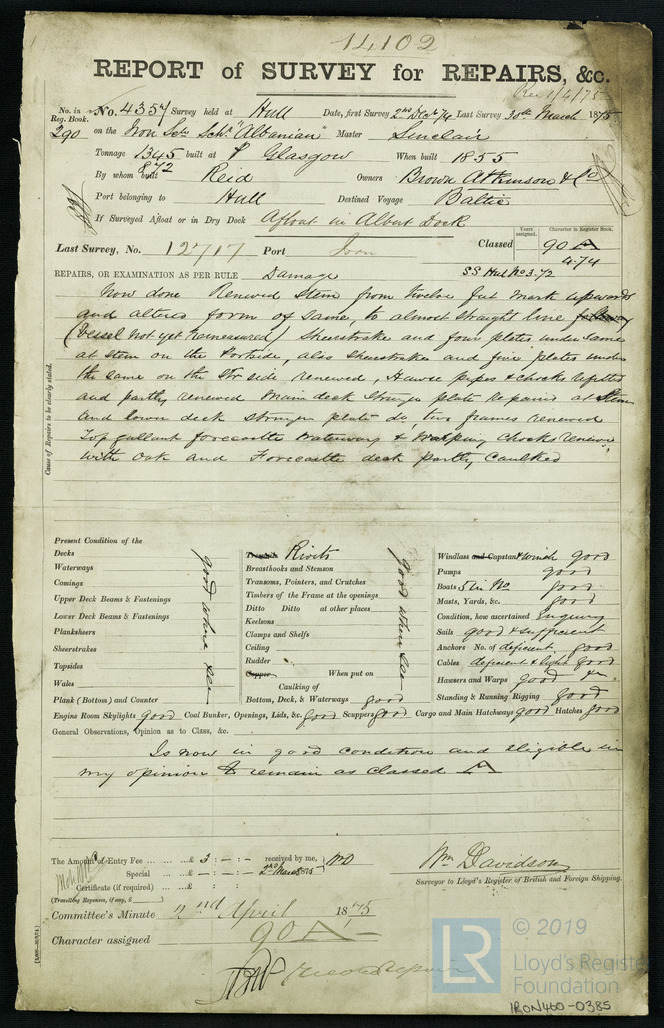 14102
REPORT of SURVEY for REPAIRS, &c.
Rec 1/4/75
No. in Reg. Book. No. 4357 Survey held at Hull Date, first Survey 2nd Decr 74 Last Survey 30th March 1875
290 on the Iron Scr Schr "Albanian" Master Sinclair
Tonnage 1345 built at Glasgow When built 1855
872
By whom built Reid Owners Brown Atkinson & Co
Port belonging to Hull Destined Voyage Baltic
If Surveyed Afloat or in Dry Dock Afloat in Albert Dock
Years assigned. Character in Register Book.
Last Survey, No. 12717 Port Iron Classed 90 A
4.74
REPAIRS, OR EXAMINATION AS PER RULE Damage SS Hul No 3.72
Now done Renewed Stem from twelve feet mark upwards
and altered form of same, to almost straight line
(Vessel not yet remeasured) Sheerstrake and four plates under same
at stem on the Portside, also sheerstrake and five plates under
the same on the Str side renewed, Hawse pipes & chocks refitted
and partly renewed Main deck Stringer plate repaired at Stem
and lower deck stringer plate do, two frames renewed
Topgallant forecastle Waterway & Warping Chocks renewed
with Oak and Forecastle deck partly caulked
Cause of Repairs to be clearly stated.
Present Condition of the
Decks
Waterways
Comings
Upper Deck Beams & Fastenings
Lower Deck Beams & Fastenings
Planksheers
Sheerstrakes
Topsides
Wales
Plank (Bottom) and Counter
good where seen
Rivets
Breasthooks and Stemson
Transoms, Pointers, and Crutches
Timbers of the Frame at the openings
Ditto Ditto at other places
Keelsons
Clamps and Shelfs
Ceiling
Rudder
Copper When put on
Caulking of
Bottom, Deck, & Waterways good
Good when see
Windlass and Capstan & winch good
Pumps good
Boats 5 in No. good
Masts, Yards, &c. good
Condition, how ascertained Enquiry
Sails good & sufficient
Anchors No. of deficient good
Cables deficient & light Good
Hawsers and Warps good
Standing & Running Rigging good
Engine Room Skylights good Coal Bunker, Openings, Lids, &c. good Scuppers good Cargo and Main Hatchways good Hatches good
General Observations, Opinion as to Class, &c.
Is now in good condition and eligible in
my opinion to remain as classed A
The Amount of Entry Fee ... £ 3 : - : - received by me, WD
Special ... £ - : - : -
Certificate (if required) ... £
(Travelling Expenses, if any, £ )
Wm Davidson
Surveyor to Lloyd's Register of British and Foreign Shipping.
Committee's Minute 2nd April 1875
Character assigned 90 A
© 2019
LR
Lloyd's Register
Foundation
IRON460-0385